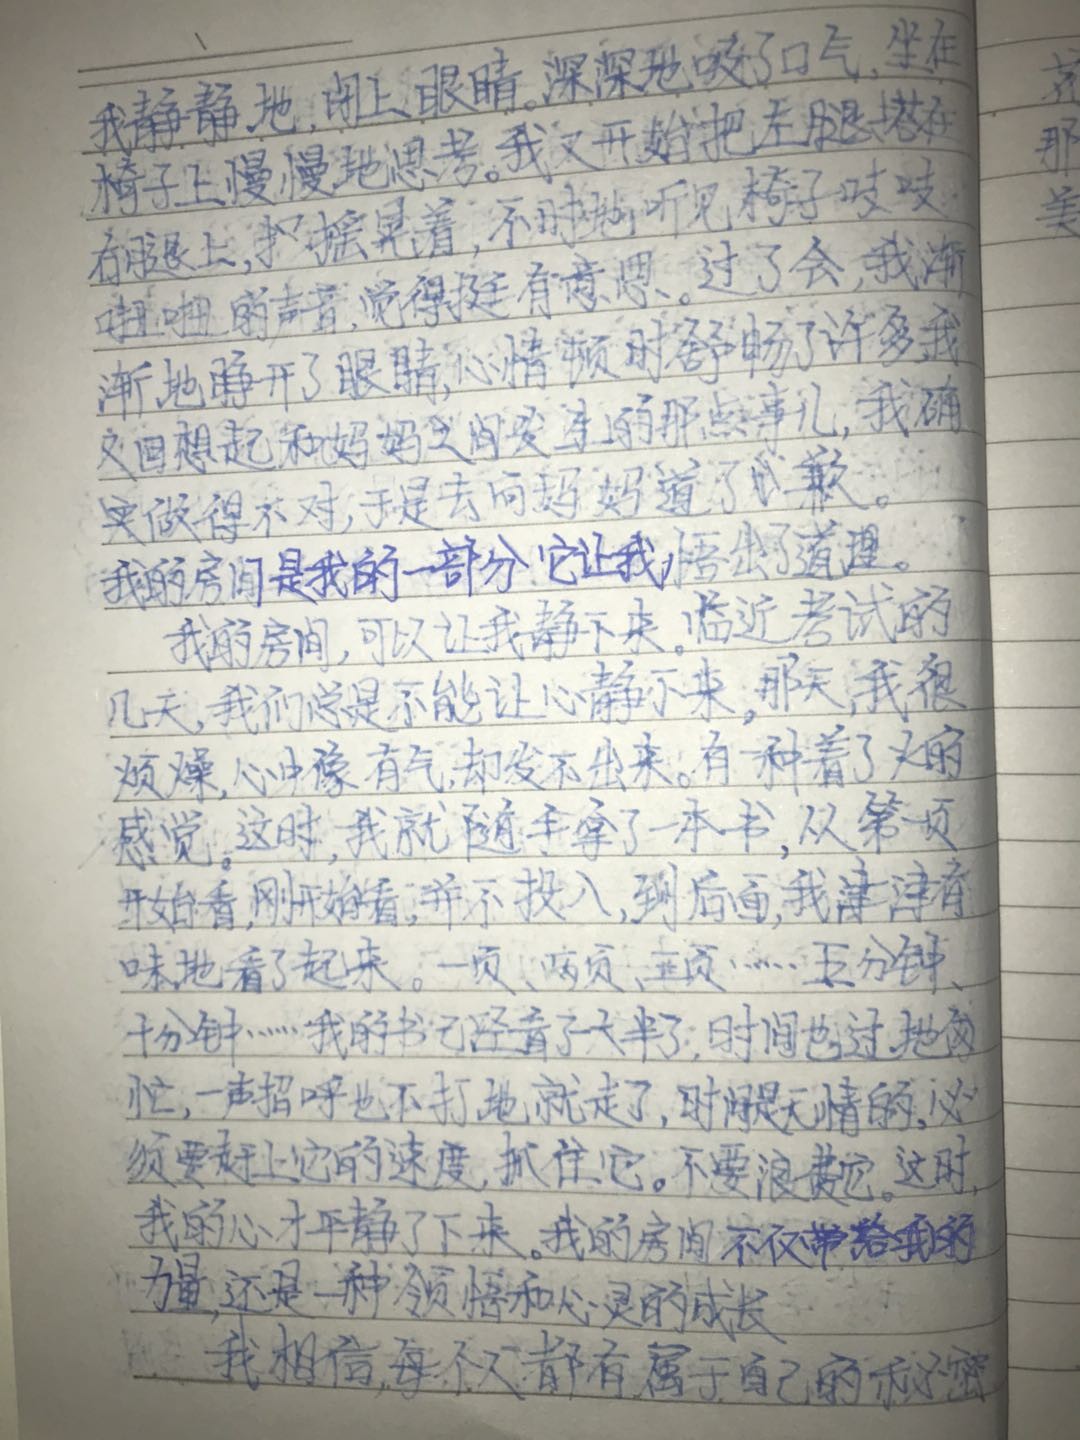 我静静地,闭上眼睛。深深地吸了口气,坐在
椅子上慢慢地思考。我又开始把左腿搭在
右腿上,摇晃着,不时地听见椅子吱吱
扭扭的声音,觉得挺有意思。过了会,我渐
渐地睁开了眼睛,心情顿时舒畅了许多,我
又回想起和妈妈之间发生的那点事儿,我确
实做得不对,于是去向妈妈道了歉。
我的房间是我的一部分,它让我悟出了道理。
我的房间,可以让我静下来。临近考试的
几天,我们总是不能让心静下来,那天,我很
烦燥,心中像有气,却发不出来。有一种着了火的
感觉。这时,我就随手拿了一本书,从第一页
开始看,刚开始看,并不投入,到后面,我津津有
味地看了起来。一页、两页、三页……五分钟、
十分钟……我的书已经看了大半了,时间也过地匆
忙,一声招呼也不打地就走了,时间是无情的,必
须要赶上它的速度,抓住它。不要浪费它。这时,
我的心才平静了下来。我的房间不仅带给我的
力量,还是一种领悟和心灵的成长
我相信,每个人都有属于自己的秘密
花
那
美